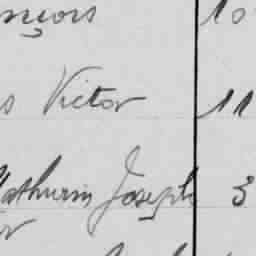 nçois 10
s Victor 11
Mathurin Joseph 3